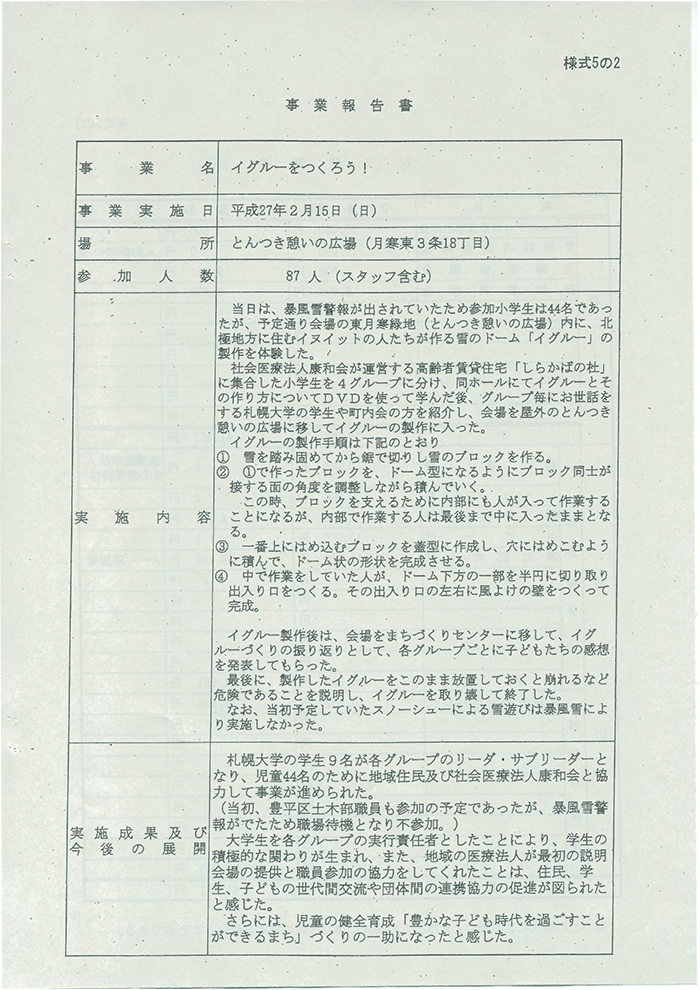 様式5の2
事業報告書
事業名 イグルーをつくろう！
事業実施日 平成27年2月15日（日）
場所 とんつき憩いの広場（月寒東3条18丁目）
参加人数 87人（スタッフ含む）
実施内容
当日は、暴風雪警報が出されていたため参加小学生は44名であっ
たが、予定通り会場の東月寒緑地（とんつき憩いの広場）内に、北
極地方に住むイヌイットの人たちが作る雪のドーム「イグルー」の
製作を体験した。
社会医療法人康和会が運営する高齢者賃貸住宅「しらかばの杜」
に集合した小学生を4グループに分け、同ホールにてイグルーとそ
の作り方についてＤＶＤを使って学んだ後、グループ毎にお世話を
する札幌大学の学生や町内会の方を紹介し、会場を屋外のとんつき
憩いの広場に移してイグルーの製作に入った。
イグルーの製作手順は下記のとおり
① 雪を踏み固めてから鋸で切りし雪のブロックを作る。
② ①で作ったブロックを、ドーム型になるようにブロック同士が
接する面の角度を調整しながら積んでいく。
この時、ブロックを支えるために内部にも人が入って作業する
ことになるが、内部で作業する人は最後まで中に入ったままとな
る。
③ 一番上にはめ込むブロックを蓋型に作成し、穴にはめこむよう
に積んで、ドーム状の形状を完成させる。
④ 中で作業をしていた人が、ドーム下方の一部を半円に切り取り
出入り口をつくる。その出入り口の左右に風よけの壁をつくって
完成。
イグルー製作後は、会場をまちづくりセンターに移して、イグ
ルーづくりの振り返りとして、各グループごとに子どもたちの感想
を発表してもらった。
最後に、製作したイグルーをこのまま放置しておくと崩れるなど
危険であることを説明し、イグルーを取り壊して終了した。
なお、当初予定していたスノーシューによる雪遊びは暴風雪によ
り実施しなかった。
実施成果及び
今後の展開
札幌大学の学生9名が各グループのリーダ・サブリーダーと
なり、児童44名のために地域住民及び社会医療法人康和会と協
力して事業が進められた。
（当初、豊平区土木部職員も参加の予定であったが、暴風雪警
報がでたため職場待機となり不参加。）
大学生を各グループの実行責任者としたことにより、学生の
積極的な関わりが生まれ、また、地域の医療法人が最初の説明
会場の提供と職員参加の協力をしてくれたことは、住民、学
生、子どもの世代間交流や団体間の連携協力の促進が図られた
と感じた。
さらには、児童の健全育成「豊かな子ども時代を過ごすこと
ができるまち」づくりの一助になったと感じた。